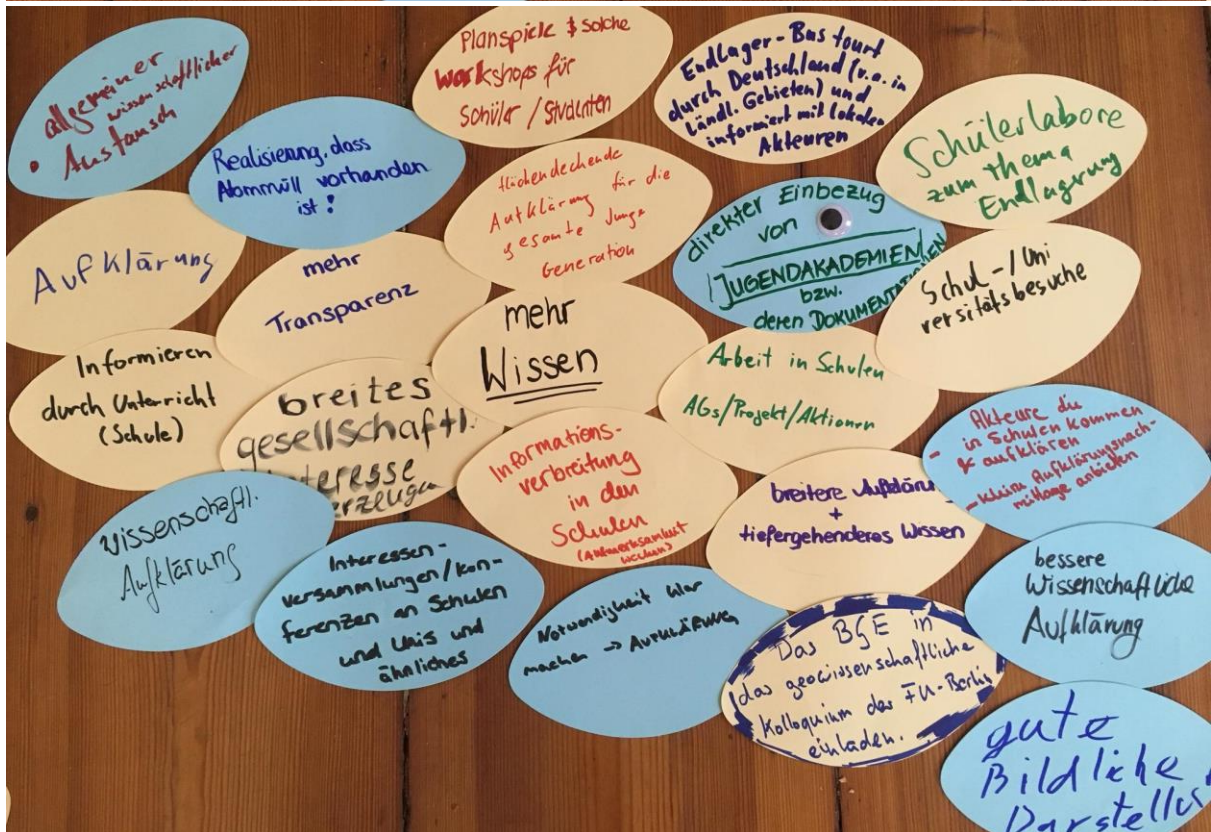 • allgemeiner
wissenschaftlicher
Austausch
Realisierung, dass
Atommüll vorhanden
ist!
Planspiele & solche
Workshops für
Schüler / Studenten
Endlager-Bus tourt
durch Deutschland (v.a. in
ländl. Gebieten) und
informiert mit lokalen
Akteuren
Schülerlabore
zum Thema
Endlagerung
Aufklärung
mehr
Transparenz
flächendeckende
Aufklärung für die
gesamte junge
Generation
direkter Einbezug
von
JUGENDAKADEMIEN
bzw.
deren DOKUMENTATIONEN
Schul-/Uni
versitätsbesuche
Informieren
durch Unterricht
(Schule)
breites
gesellschaftl.
Interesse
erzeugen
mehr
Wissen
Arbeit in Schulen
AGs/Projekt/Aktionen
- Akteure die
in Schulen kommen
& aufklären
- kleine Aufklärungsnach-
mittage anbieten
wissenschaftl.
Aufklärung
Interessen-
versammlungen/Kon-
ferenzen an Schulen
und Unis und
ähnliches
Informations-
verbreitung
in den
Schulen
(Aufmerksamkeit
wecken)
breitere Aufklärung
+
tiefergehenderes Wissen
Notwendigkeit klar
machen → Aufklärung
Das BGE in
das geowissenschaftliche
Kolloquium der FU-Berlin
einladen.
bessere
Wissenschaftliche
Aufklärung
gute
Bildliche